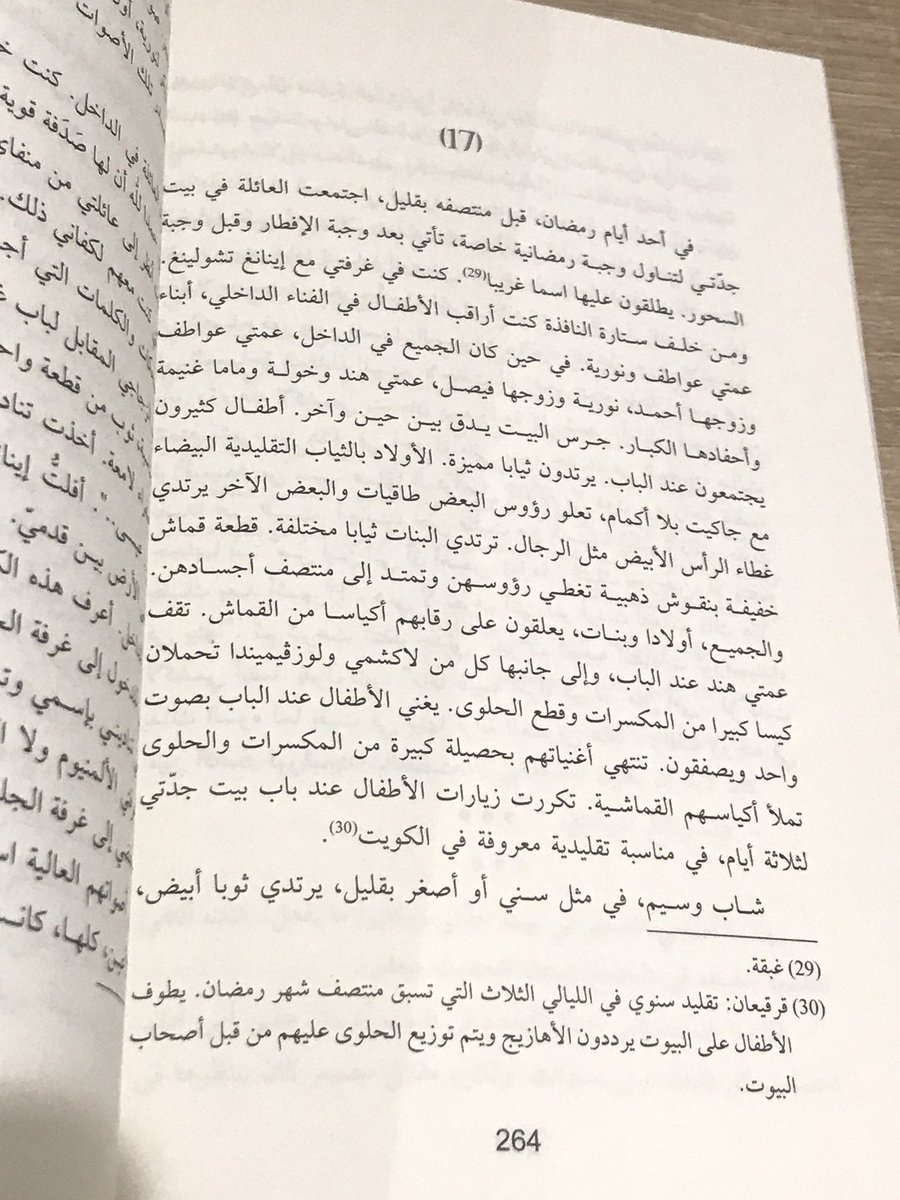 (17)
في أحد أيام رمضان، قبل منتصفه بقليل، اجتمعت العائلة في بيت
جدّتي لتناول وجبة رمضانية خاصة، تأتي بعد وجبة الإفطار وقبل وجبة
السحور. يطلقون عليها اسما غريبا(29). كنت في غرفتي مع إينانغ تشولينغ.
ومن خلف ستارة النافذة كنت أراقب الأطفال في الفناء الداخلي، أبناء
عمتي عواطف ونورية. في حين كان الجميع في الداخل، عمتي عواطف
وزوجها أحمد، نورية وزوجها فيصل، عمتي هند وخولة وماما غنيمة
وأحفادها الكبار. جرس البيت يدق بين حين وآخر. أطفال كثيرون
يجتمعون عند الباب. يرتدون ثيابا مميزة. الأولاد بالثياب التقليدية البيضاء
مع جاكيت بلا أكمام، تعلو رؤوس البعض طاقيات والبعض الآخر يرتدي
غطاء الرأس الأبيض مثل الرجال. ترتدي البنات ثيابا مختلفة. قطعة قماش
خفيفة بنقوش ذهبية تغطي رؤوسهن وتمتد إلى منتصف أجسادهن.
والجميع، أولادا وبنات، يعلقون على رقابهم أكياسا من القماش. تقف
عمتي هند عند الباب، وإلى جانبها كل من لاكشمي ولوزڤيميندا تحملان
كيسا كبيرا من المكسرات وقطع الحلوى. يغني الأطفال عند الباب بصوت
واحد ويصفقون. تنتهي أغنياتهم بحصيلة كبيرة من المكسرات والحلوى
تملأ أكياسهم القماشية. تكررت زيارات الأطفال عند باب بيت جدّتي
لثلاثة أيام، في مناسبة تقليدية معروفة في الكويت(30).
شاب وسيم، في مثل سني أو أصغر بقليل، يرتدي ثوبا أبيض،
(29) غبقة.
(30) قرقيعان: تقليد سنوي في الليالي الثلاث التي تسبق منتصف شهر رمضان. يطوف
الأطفال على البيوت يرددون الأهازيج ويتم توزيع الحلوى عليهم من قبل أصحاب
البيوت.
264
تلك الأصوات
في الداخل. كنت
أن لها صَدَفة قوية
إلى عائلتي من منفاي
معهم لكفاني ذلك.
والكلمات التي
المقابل لباب
ثوب من قطعة
لامعة. أخذت
أفلتُّ
الأرض بين قدميّ.
أعرف هذه
إلى غرفة
بإسمي
الألمنيوم ولا
إلى غرفة
العالية
كلها،